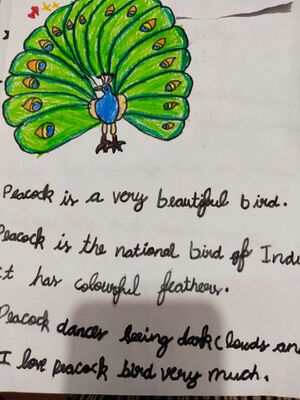 Peacock is a very beautiful bird.
Peacock is the national bird of Indi
It has colourful feathers.
Peacock dances seeing dark clouds and
I love peacock bird very much.